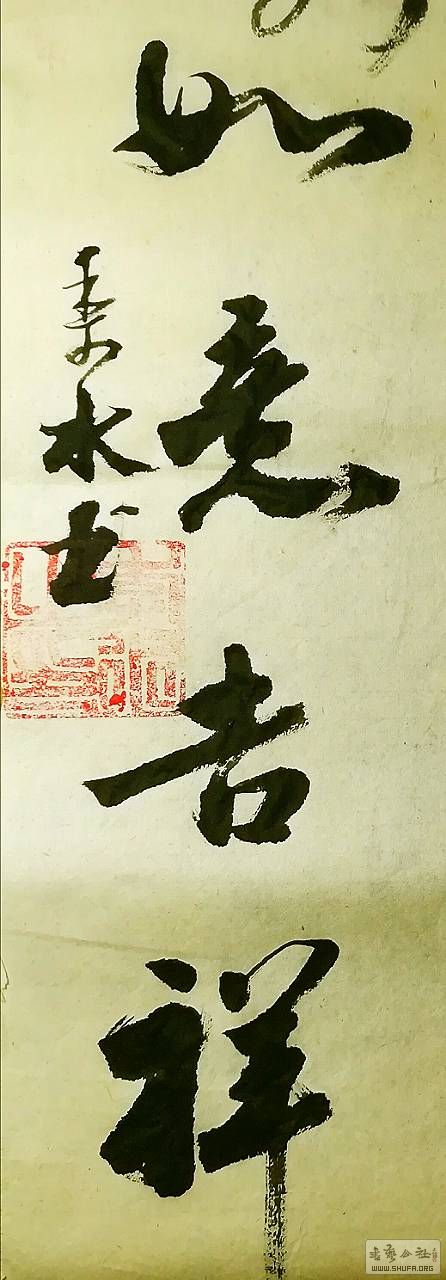 如意吉祥
水书
书艺公社
WWW.SHUFA.ORG